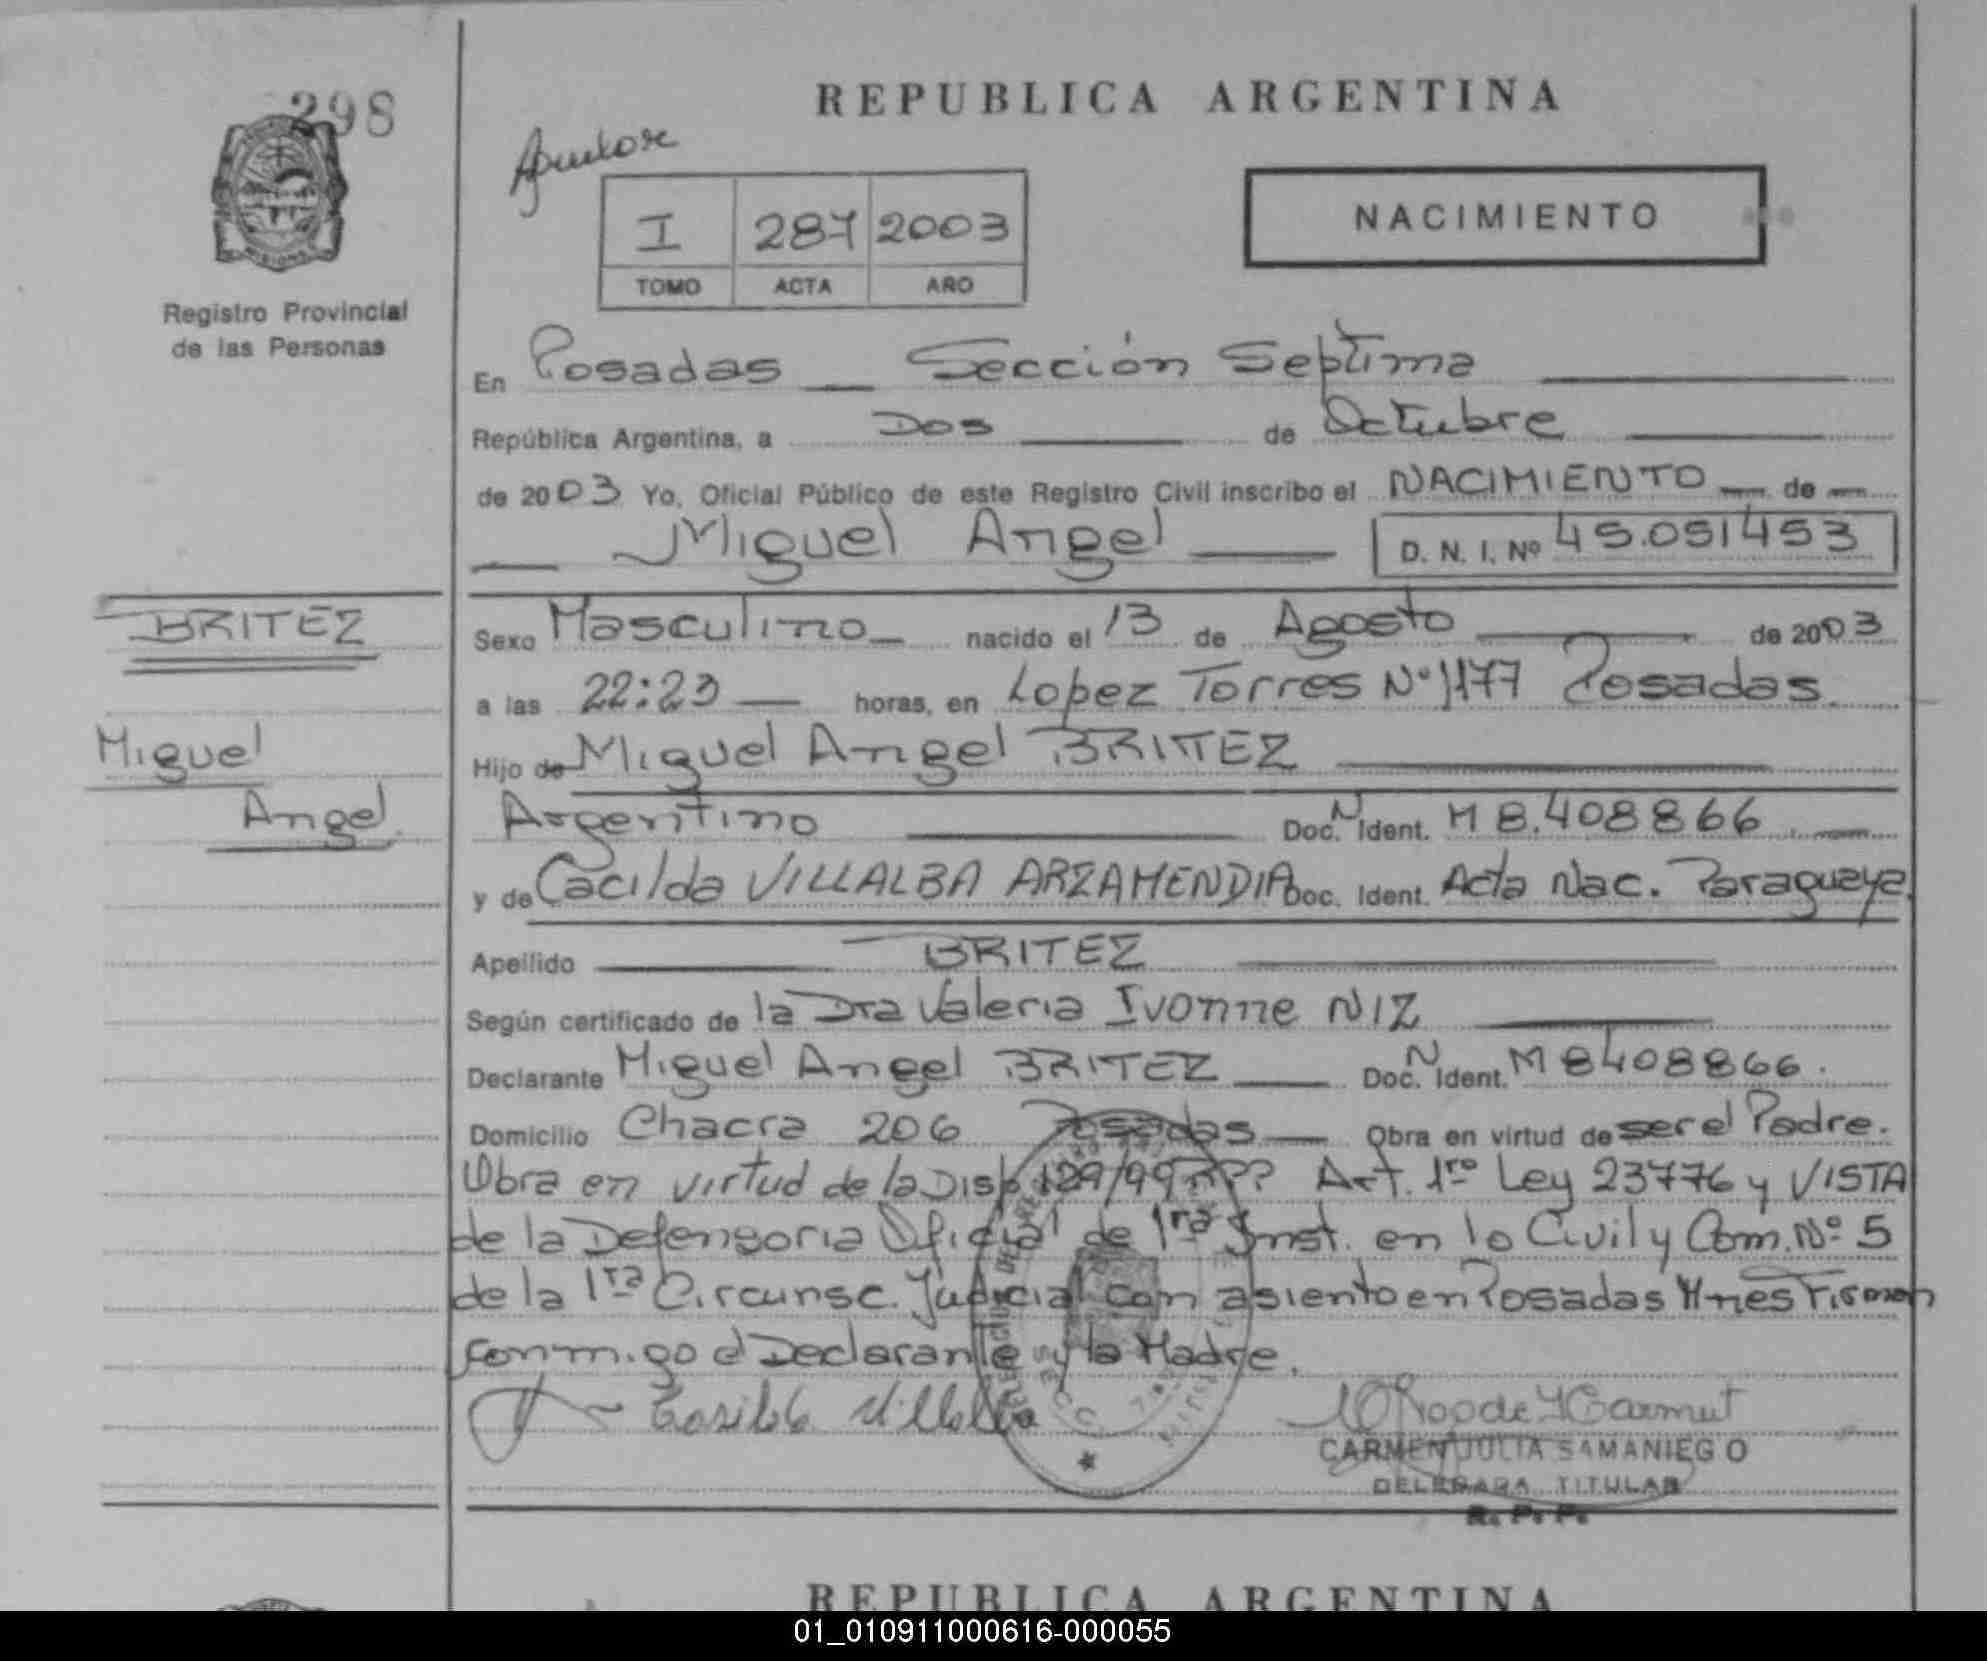 298
REPUBLICA ARGENTINA
I 287 2003
TOMO ACTA AÑO
NACIMIENTO
Registro Provincial
de las Personas
En Posadas Sección Septima
República Argentina, a Dos de Octubre
de 2003 Yo, Oficial Público de este Registro Civil inscribo el NACIMIENTO de
Miguel Angel D. N. I. Nº 45.051453
BRITEZ
Sexo Masculino nacido el 13 de Agosto de 2003
a las 22:23 horas, en Lopez Torres Nº 1177 Posadas.
Miguel
Hijo de Miguel Angel BRITEZ
Angel.
Argentino Doc. N Ident. M 8.408866
y de Cacilda VILLALBA ARZAMENDIA Doc. Ident. Acta Nac. Paraguaya
Apellido BRITEZ
Según certificado de la Dra Valeria Ivonne NIZ
Declarante Miguel Angel BRITEZ Doc. N Ident. M 8408866.
Domicilio Chacra 206 Posadas Obra en virtud de ser el Padre.
Obra en virtud de la Disp 129/99 Art. 1ro Ley 23776 y VISTA
de la Defensoria Oficial de 1ra Inst. en lo Civil y Com. Nº 5
de la 1ra Circunsc. Judicial con asiento en Posadas Mnes Firman
conmigo el Declarante y la Madre.
CARMEN JULIA SAMANIEGO
DELEGADA TITULAR
R. P. P.
REPUBLICA ARGENTINA
01_010911000616-000055